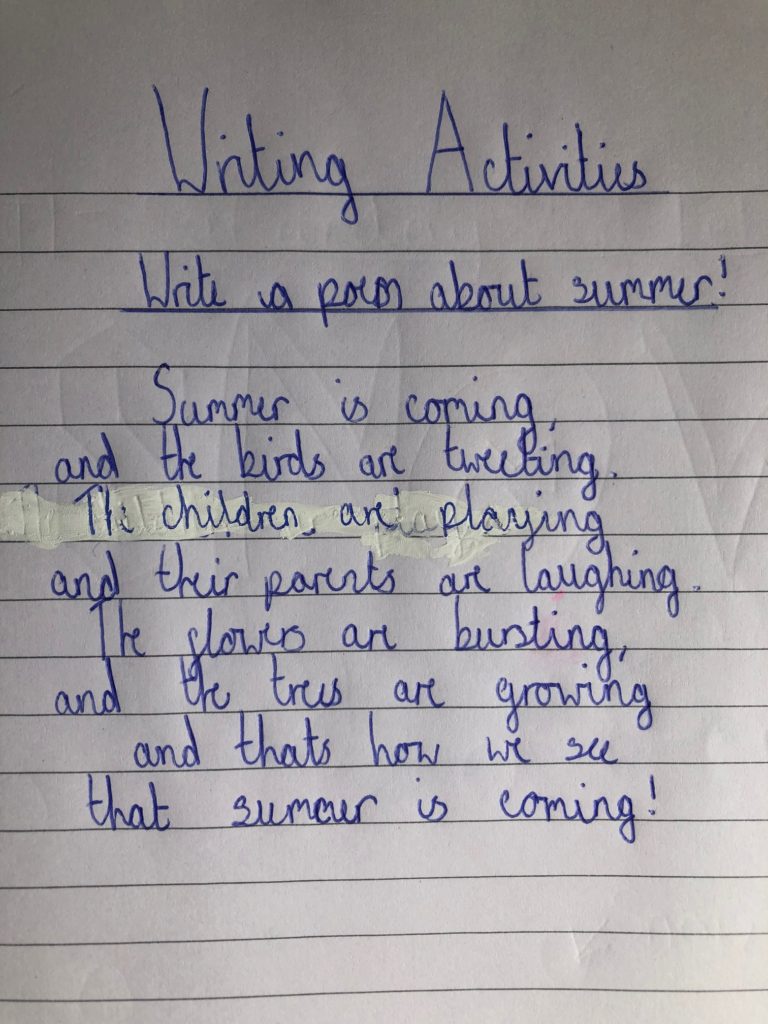 Writing Activities
Write a poem about summer!
Summer is coming,
and the birds are tweeting.
The children are playing
and their parents are laughing.
The flowers are bursting,
and the trees are growing
and thats how we see
that summer is coming!